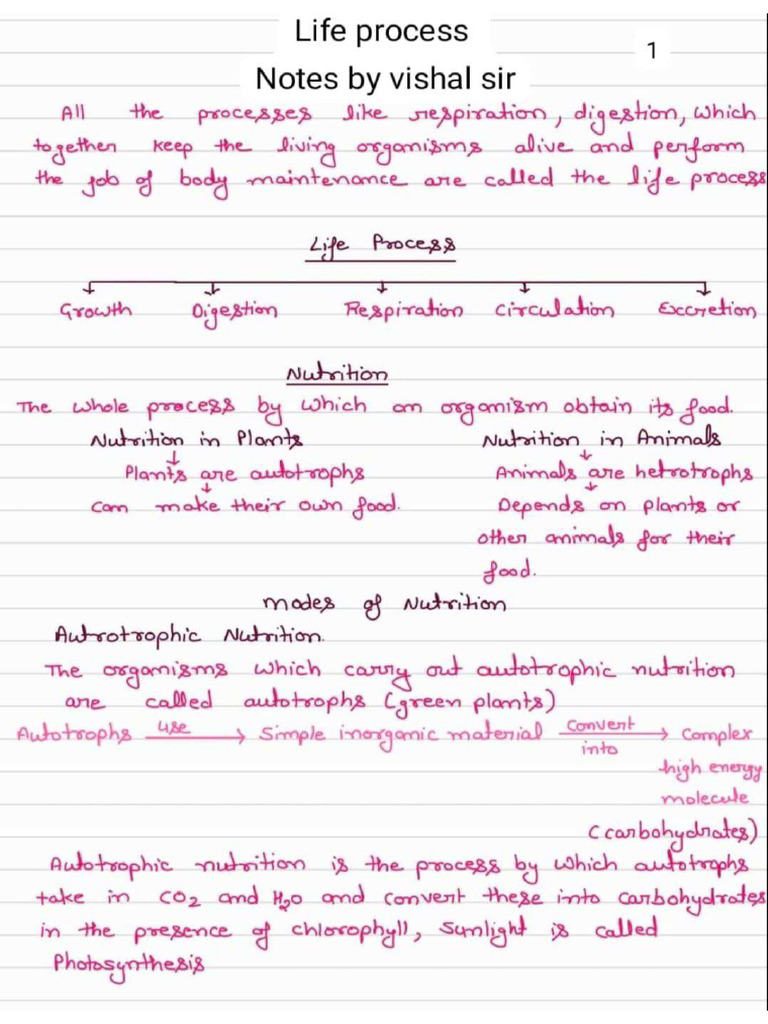 Life process
1
Notes by vishal sir
All the processes like respiration, digestion, which
together keep the living organisms alive and perform
the job of body maintenance are called the life process
Life Process
Growth Digestion Respiration circulation Excretion
Nutrition
The whole process by which an organism obtain its food.
Nutrition in Plants Nutrition in Animals
Plants are autotrophs Animals are hetrotrophs
can make their own food. Depends on plants or
other animals for their
food.
modes of Nutrition
Autrotrophic Nutrition.
The organisms which carry out autotrophic nutrition
are called autotrophs (green plants)
Autotrophs use → Simple inorganic material convert into → Complex
high energy
molecule
(carbohydrates)
Autotrophic nutrition is the process by which autotrophs
take in CO2 and H2O and convert these into carbohydrates
in the presence of chlorophyll, sunlight is called
Photosynthesis